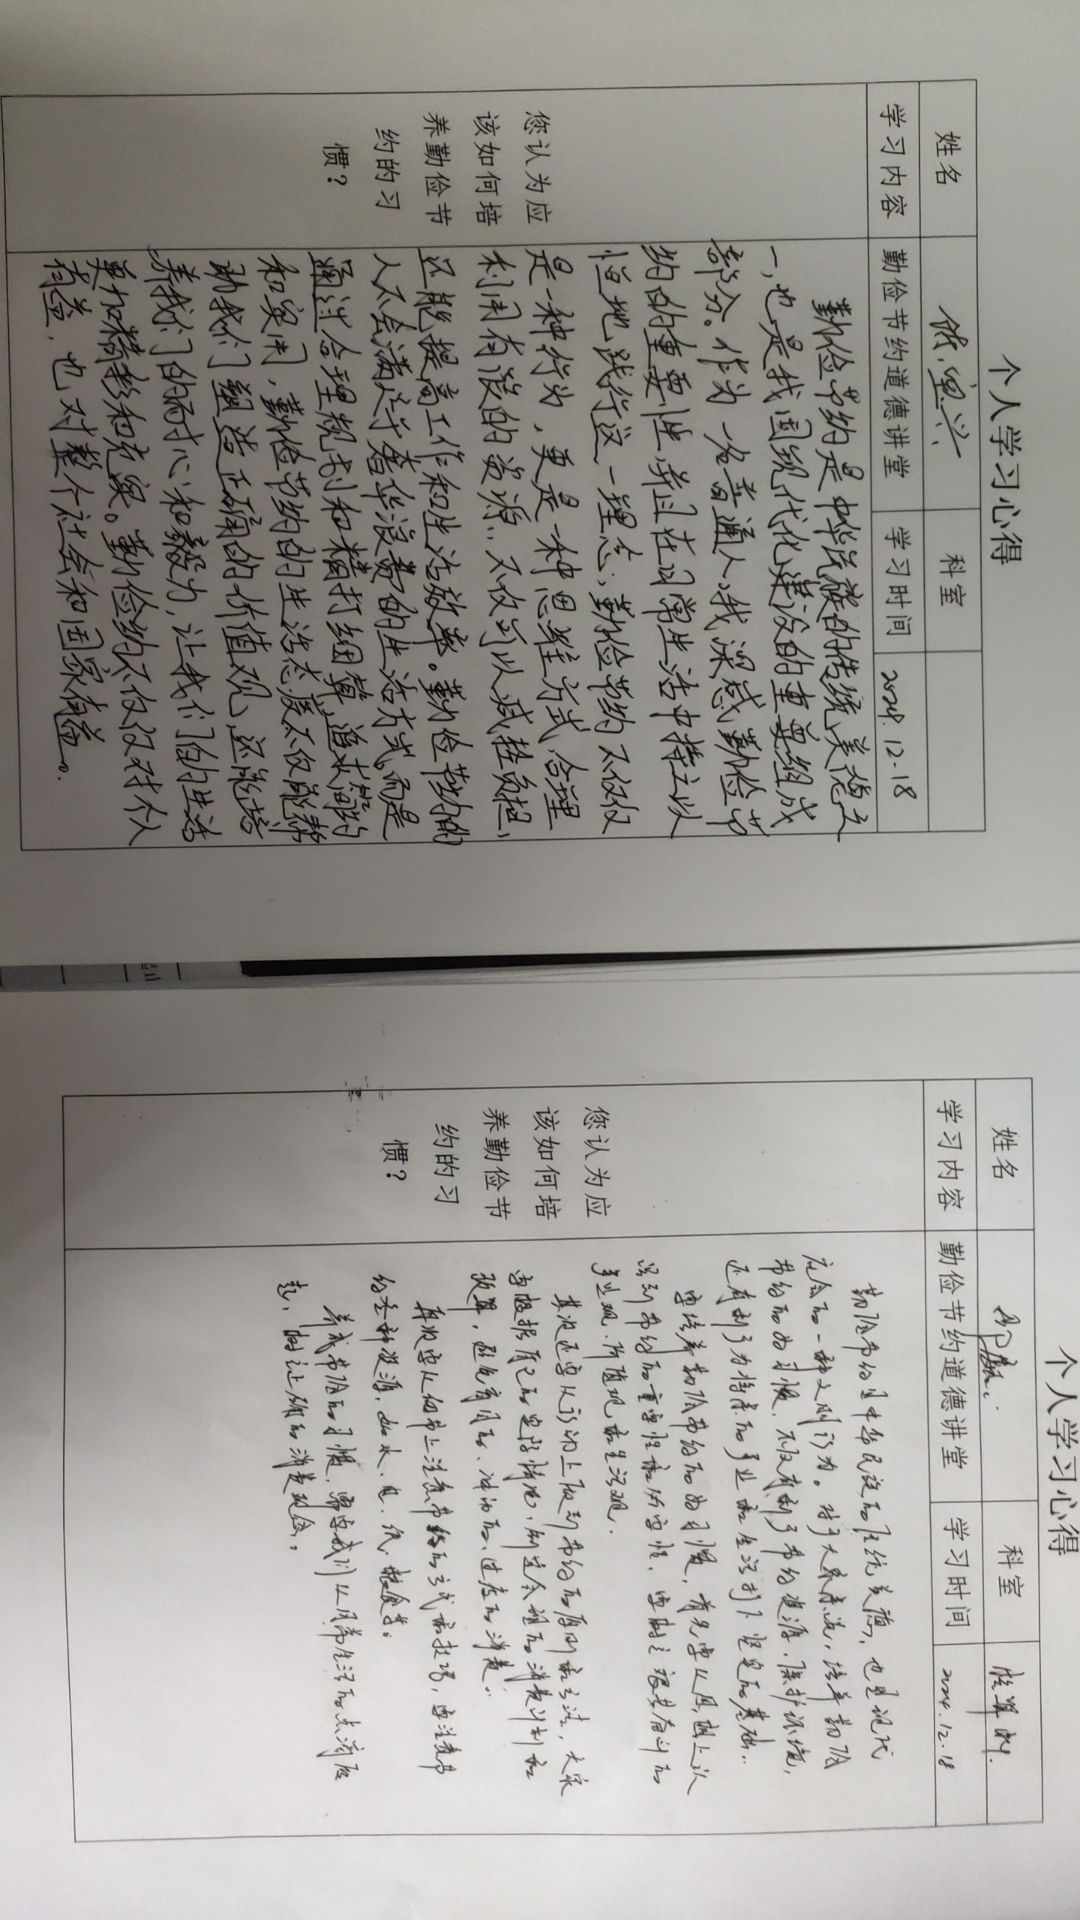 个人学习心得
姓名
科室
学习内容 勤俭节约道德讲堂 学习时间 2024.12.18
您认为应
该如何培
养勤俭节
约的习
惯？
勤俭节约是中华民族的传统美德之
一，也是我国现代化建设的重要组成
部分。作为一名普通人，我深感勤俭节
约的重要性，并且在日常生活中持之以
恒地践行这一理念，勤俭节约不仅仅
是一种行为，更是一种思维方式，合理
利用有限的资源，不仅可以减轻负担，
还能提高工作和生活效率。勤俭节约的
人不会满足于奢华浪费的生活方式，而是
通过合理规划和精打细算，追求简约
和实用，勤俭节约的生活态度不仅能帮
助我们塑造正确的价值观，还能培
养我们的耐心和毅力，让我们的生活
更加精彩和充实。勤俭约不仅仅对个人
有益，也对整个社会和国家有益。
个人学习心得
姓名
科室
学习内容 勤俭节约道德讲堂 学习时间 2024.12.18
您认为应
该如何培
养勤俭节
约的习
惯？
勤俭节约是中华民族的传统美德，也是现代
社会的一种文明行为。对于大家来说，培养勤俭
节约的好习惯，不仅有利于节约资源，保护环境，
还有利于为将来的事业和生活打下坚实的基础。
要培养勤俭节约的好习惯，首先要从思想上认
识到节约的重要性和必要性，要树立艰苦奋斗的
事业观、价值观和生活观。
其次还要从行动上做到节约的原则和方法，大家
要根据自己的实际情况，制定合理的消费计划和
预算，避免盲目的、冲动的、过度的消费。
再次要从细节上注意节约的方式和技巧，要注意节
约各种资源，如水、电、纸、粮食等。
养成节俭的习惯，需要我们从日常生活的点滴做
起，树立正确的消费观念。